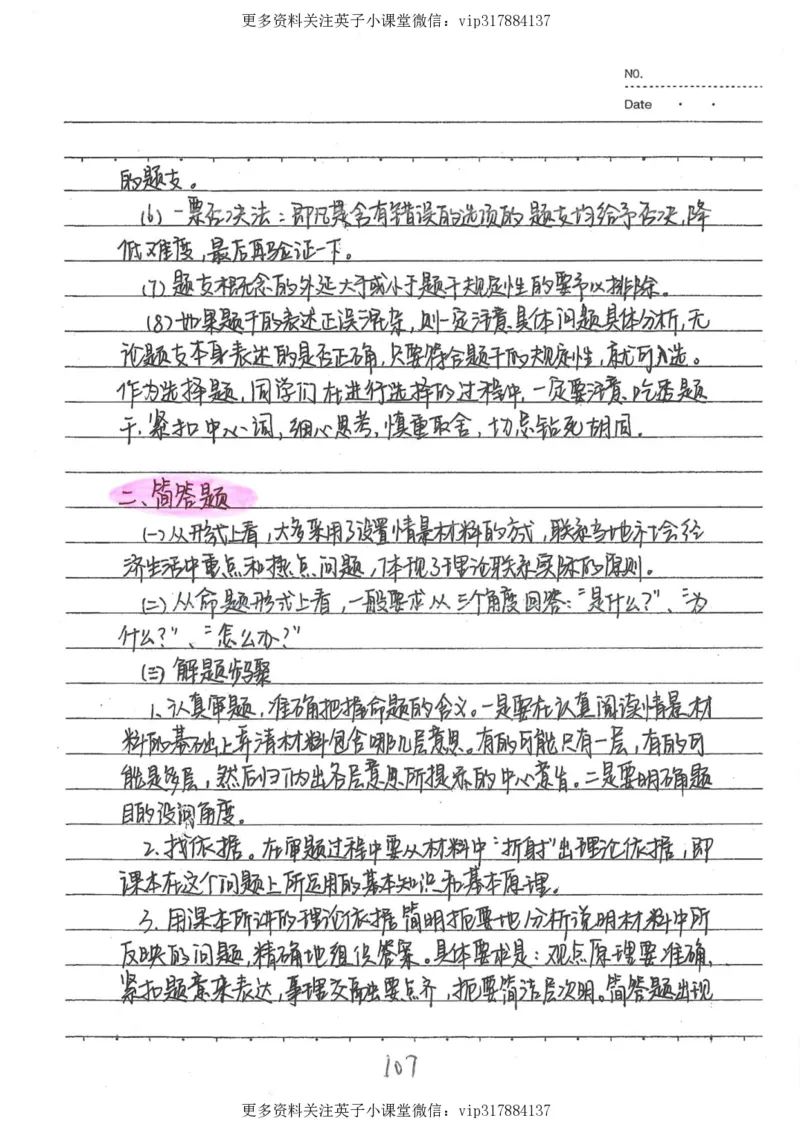 更多资料关注英子小课堂微信：vip317884137
NO.
Date
的题支。
(6)一票否决法：即凡是含有错误的选项的题支均给予否决,降
低难度,最后再验证一下。
(7)题支概念的外延大于或小于题干规定性的要予以排除。
(8)如果题干的表述正误混杂,则一定注意具体问题具体分析,无
论题支本身表述的是否正确,只要符合题干的规定性,就可入选。
作为选择题,同学们在进行选择的过程中,一定要注意吃透题
干、紧扣中心词,细心思考,慎重取舍,切忌钻死胡同。
二、简答题
(一)从形式上看,大多采用了设置情景材料的方式,联系当地社会经
济生活中重点和热点问题,体现了理论联系实际的原则。
(二)从命题形式上看,一般要求从三个角度回答:“是什么?”、“为
什么?”、“怎么办?”
(三)解题步骤
1、认真审题,准确把握命题的含义。一是要在认真阅读情景材
料的基础上弄清材料包含哪几层意思。有的可能只有一层,有的可
能是多层,然后归纳出各层意思所提示的中心意旨。二是要明确题
目的设问角度。
2、找依据。在审题过程中要从材料中“折射”出理论依据,即
课本在这个问题上所运用的基本知识和基本原理。
3、用课本所讲的理论依据简明扼要地分析说明材料中所
反映的问题,精确地组织答案。具体要求是:观点原理要准确,
紧扣题意来表达,事理交融出要点齐,扼要简洁层次明。简答题出现
107
更多资料关注英子小课堂微信：vip317884137